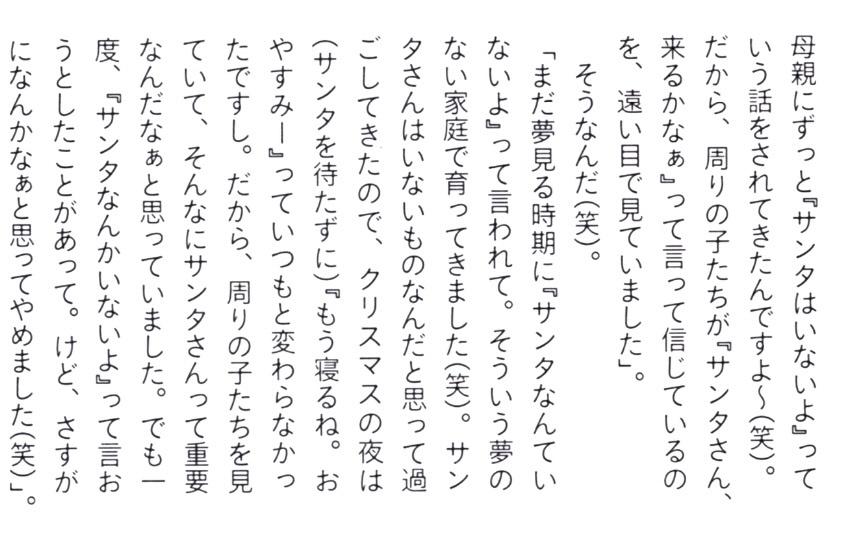 母親にずっと『サンタはいないよ』って
いう話をされてきたんですよ〜(笑)。
だから、周りの子たちが『サンタさん、
来るかなぁ』って言って信じているの
を、遠い目で見ていました」。
そうなんだ(笑)。
「まだ夢見る時期に『サンタなんてい
ないよ』って言われて。そういう夢の
ない家庭で育ってきました(笑)。サン
タさんはいないものなんだと思って過
ごしてきたので、クリスマスの夜は
(サンタを待たずに)『もう寝るね。お
やすみー』っていつもと変わらなかっ
たですし。だから、周りの子たちを見
ていて、そんなにサンタさんって重要
なんだなぁと思っていました。でも一
度、『サンタなんかいないよ』って言お
うとしたことがあって。けど、さすが
になんかなぁと思ってやめました(笑)」。